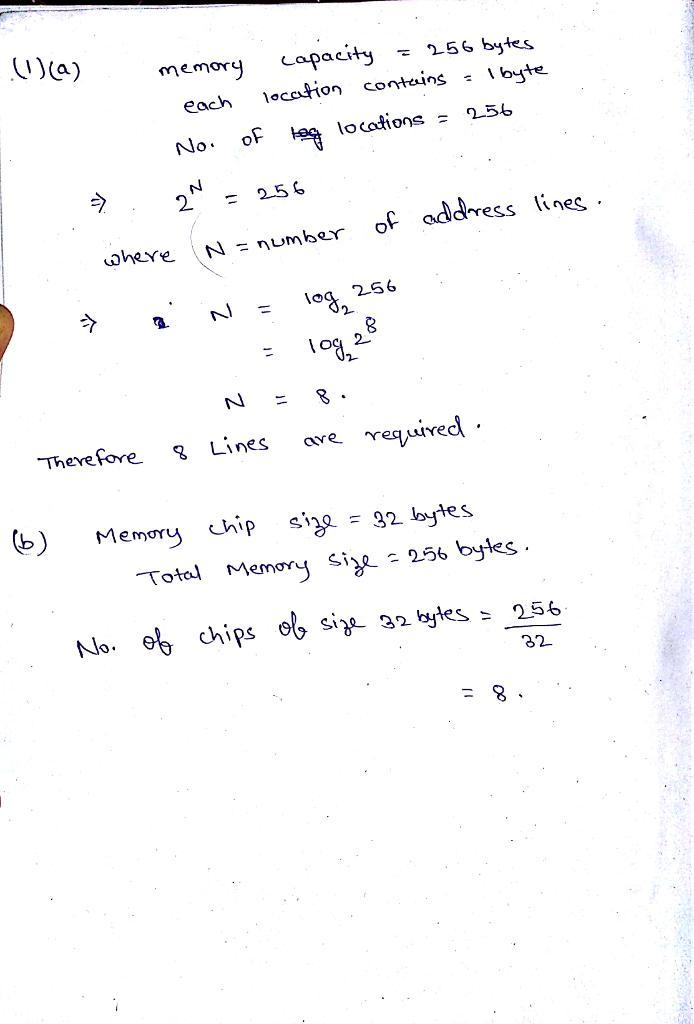 (1)(a) memory capacity = 256 bytes
each location contains = 1 byte
No. of locations = 256
⇒ 2^N = 256
where N = number of address lines.
⇒ N = log₂ 256
= log₂ 2^8
N = 8.
Therefore 8 Lines are required.
(b) Memory chip size = 32 bytes
Total Memory size = 256 bytes.
No. of chips of size 32 bytes = 256/32
= 8.